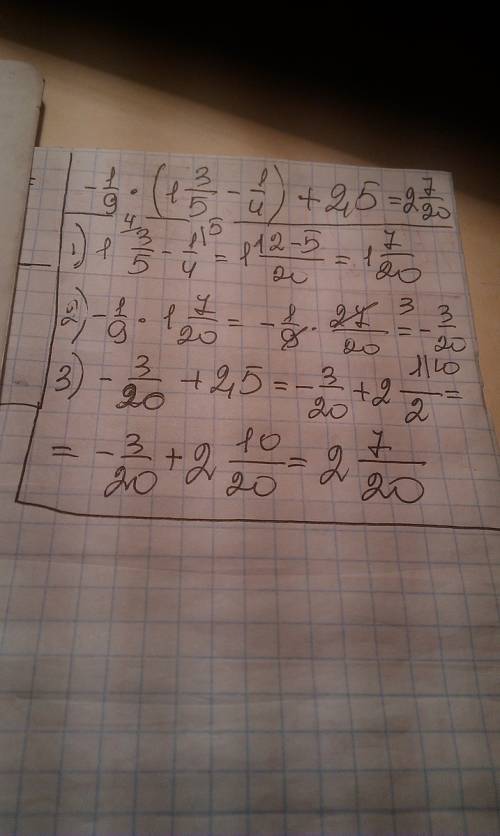 -1/9 · (1 3/5 - 1/4) + 2,5 = 2 7/20
1) 1 3/5 - 1/4 = 1 12-5/20 = 1 7/20
2) -1/9 · 1 7/20 = -1/9 · 27/20 = -3/20
3) -3/20 + 2,5 = -3/20 + 2 1/2 =
= -3/20 + 2 10/20 = 2 7/20